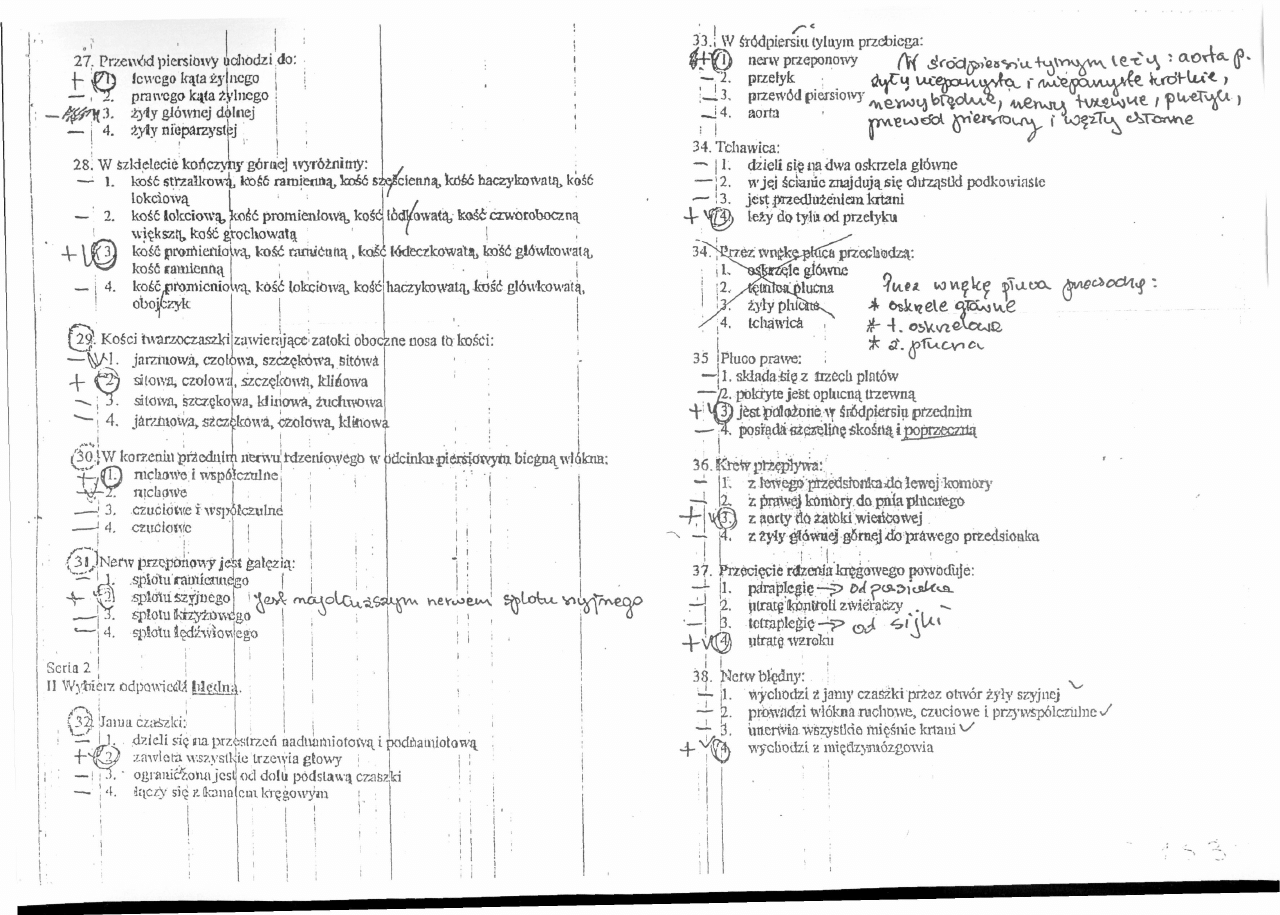 27. Przewód piersiowy uchodzi do:
+ 1) lewego kąta żylnego
— 2. prawego kąta żylnego
— 3. żyły głównej dolnej
— 4. żyły nieparzystej
28. W szkielecie kończyny górnej wyróżnimy:
— 1. kość strzałkową, kość ramienną, kość sześcienną, kość haczykowatą, kość
łokciową
— 2. kość łokciową, kość promieniową, kość łódkowatą, kość czworoboczną
większą, kość grochowatą
+ V 3) kość promieniową, kość ramienną , kość łódeczkowatą, kość główkowatą,
kość ramienną
— 4. kość promieniową, kość łokciową, kość haczykowatą, kość główkowatą,
obojczyk
29. Kości twarzoczaszki zawierające zatoki oboczne nosa to kości:
— V 1. jarzmowa, czołowa, szczękowa, sitowa
+ 2) sitowa, czołowa, szczękowa, klinowa
— 3. sitowa, szczękowa, klinowa, żuchwowa
— 4. jarzmowa, szczękowa, czołowa, klinowa
30. W korzeniu przednim nerwu rdzeniowego w odcinku piersiowym biegną włókna:
+ 1. ruchowe i współczulne
— 2. ruchowe
— 3. czuciowe i współczulne
— 4. czuciowe
31. Nerw przeponowy jest gałęzią:
— 1. splotu ramiennego
+ 2) splotu szyjnego jest najdłuższym nerwem splotu szyjnego
— 3. splotu krzyżowego
— 4. splotu lędźwiowego
Seria 2
II Wybierz odpowiedź błędną.
32. Jama czaszki:
— 1. dzieli się na przestrzeń nadnamiotową i podnamiotową
+ V 2) zawiera wszystkie trzewia głowy
— 3. ograniczona jest od dołu podstawą czaszki
— 4. łączy się z kanałem kręgowym
33. W śródpiersiu tylnym przebiega:
+ 1) nerw przeponowy W śródpiersiu tylnym leży : aorta p.
— 2. przełyk żyły nieparzysta i nieparzyste krótkie,
— 3. przewód piersiowy nerwy błędne, nerwy trzewne, przełyk,
— 4. aorta przewód piersiowy i węzły chłonne
34. Tchawica:
— 1. dzieli się na dwa oskrzela główne
— 2. w jej ścianie znajdują się chrząstki podkowiaste
— 3. jest przedłużeniem krtani
+ V 4) leży do tyłu od przełyku
34. Przez wnękę płuca przechodzą:
1. oskrzele główne
2. tętnica płucna Przez wnękę płuca przewodzą :
3. żyły płucne * oskrzele główne
4. tchawica * t. oskrzelowe
* ż. płucna
35 Płuco prawe:
— 1. składa się z trzech płatów
— 2. pokryte jest opłucną trzewną
+ V 3) jest położone w śródpiersiu przednim
— 4. posiada szczelinę skośną i poprzeczną
36. Krew przepływa:
— 1. z lewego przedsionka do lewej komory
— 2. z prawej komory do pnia płucnego
+ V 3. z aorty do zatoki wieńcowej
— 4. z żyły głównej górnej do prawego przedsionka
37. Przecięcie rdzenia kręgowego powoduje:
— 1. paraplegię → od pasioka
— 2. utratę kontroli zwieraczy
— 3. tetraplegię → od sijki
+ V 4) utratę wzroku
38. Nerw błędny:
— 1. wychodzi z jamy czaszki przez otwór żyły szyjnej ✓
— 2. prowadzi włókna ruchowe, czuciowe i przywspółczulne ✓
— 3. unerwia wszystkie mięśnie krtani ✓
+ V 4 wychodzi z międzymózgowia